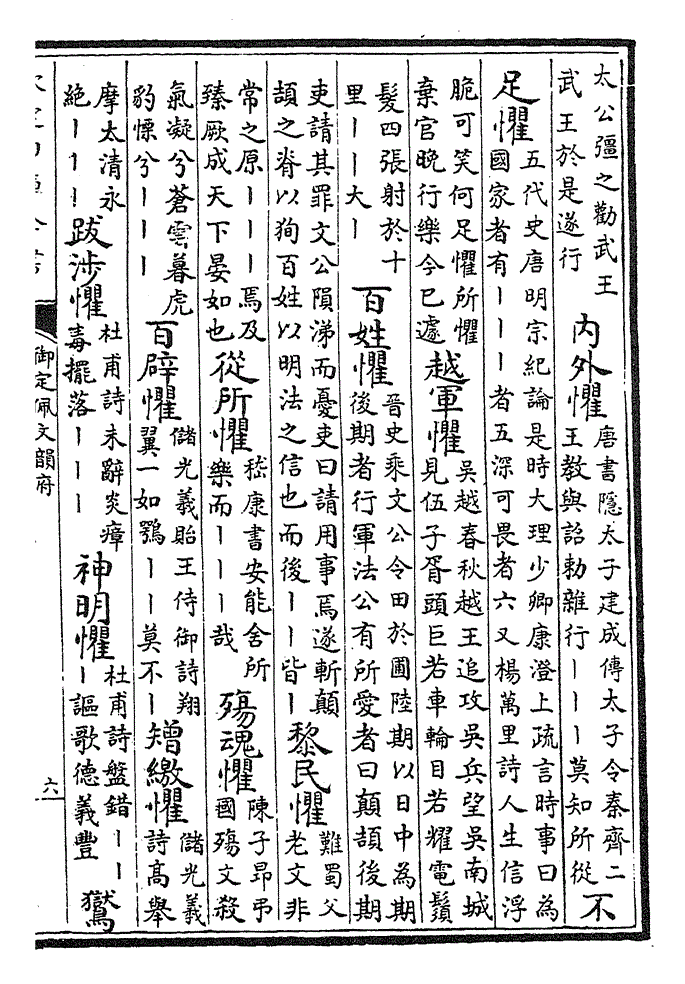 太公彊之勸武王
武王於是遂行
內外懼
唐書隱太子建成傳太子令秦齊二
王教與詔勅雜行丨丨丨莫知所從
不
足懼
五代史唐明宗紀論是時大理少卿康澄上疏言時事曰為
國家者有丨丨丨者五深可畏者六又楊萬里詩人生信浮
脆可笑何足懼所懼
棄官晚行樂今已遽
越軍懼
吳越春秋越王追攻吳兵望吳南城
見伍子胥頭巨若車輪目若耀電鬚
髮四張射於十
里丨丨大丨
百姓懼
晉史乘文公令田於圃陸期以日中為期
後期者行軍法公有所愛者曰顛頡後期
吏請其罪文公隕涕而憂吏曰請用事焉遂斬顛
頡之脊以狥百姓以明法之信也而後丨丨皆丨
黎民懼
難蜀父
老文非
常之原丨丨丨焉及
臻厥成天下晏如也
從所懼
嵇康書安能舍所
樂而丨丨丨哉
殤魂懼
陳子昂弔
國殤文殺
氣凝兮蒼雲暮虎
豹慄兮丨丨丨
百辟懼
儲光義貽王侍御詩翔
翼一如鶚丨丨莫不丨
矰繳懼
儲光義
詩高舉
摩太清永
絕丨丨丨
跋涉懼
杜甫詩未辭炎瘴
毒擺落丨丨丨
神明懼
杜甫詩盤錯丨丨
丨謳歌德義豐
鸑
御定佩文韻府
六